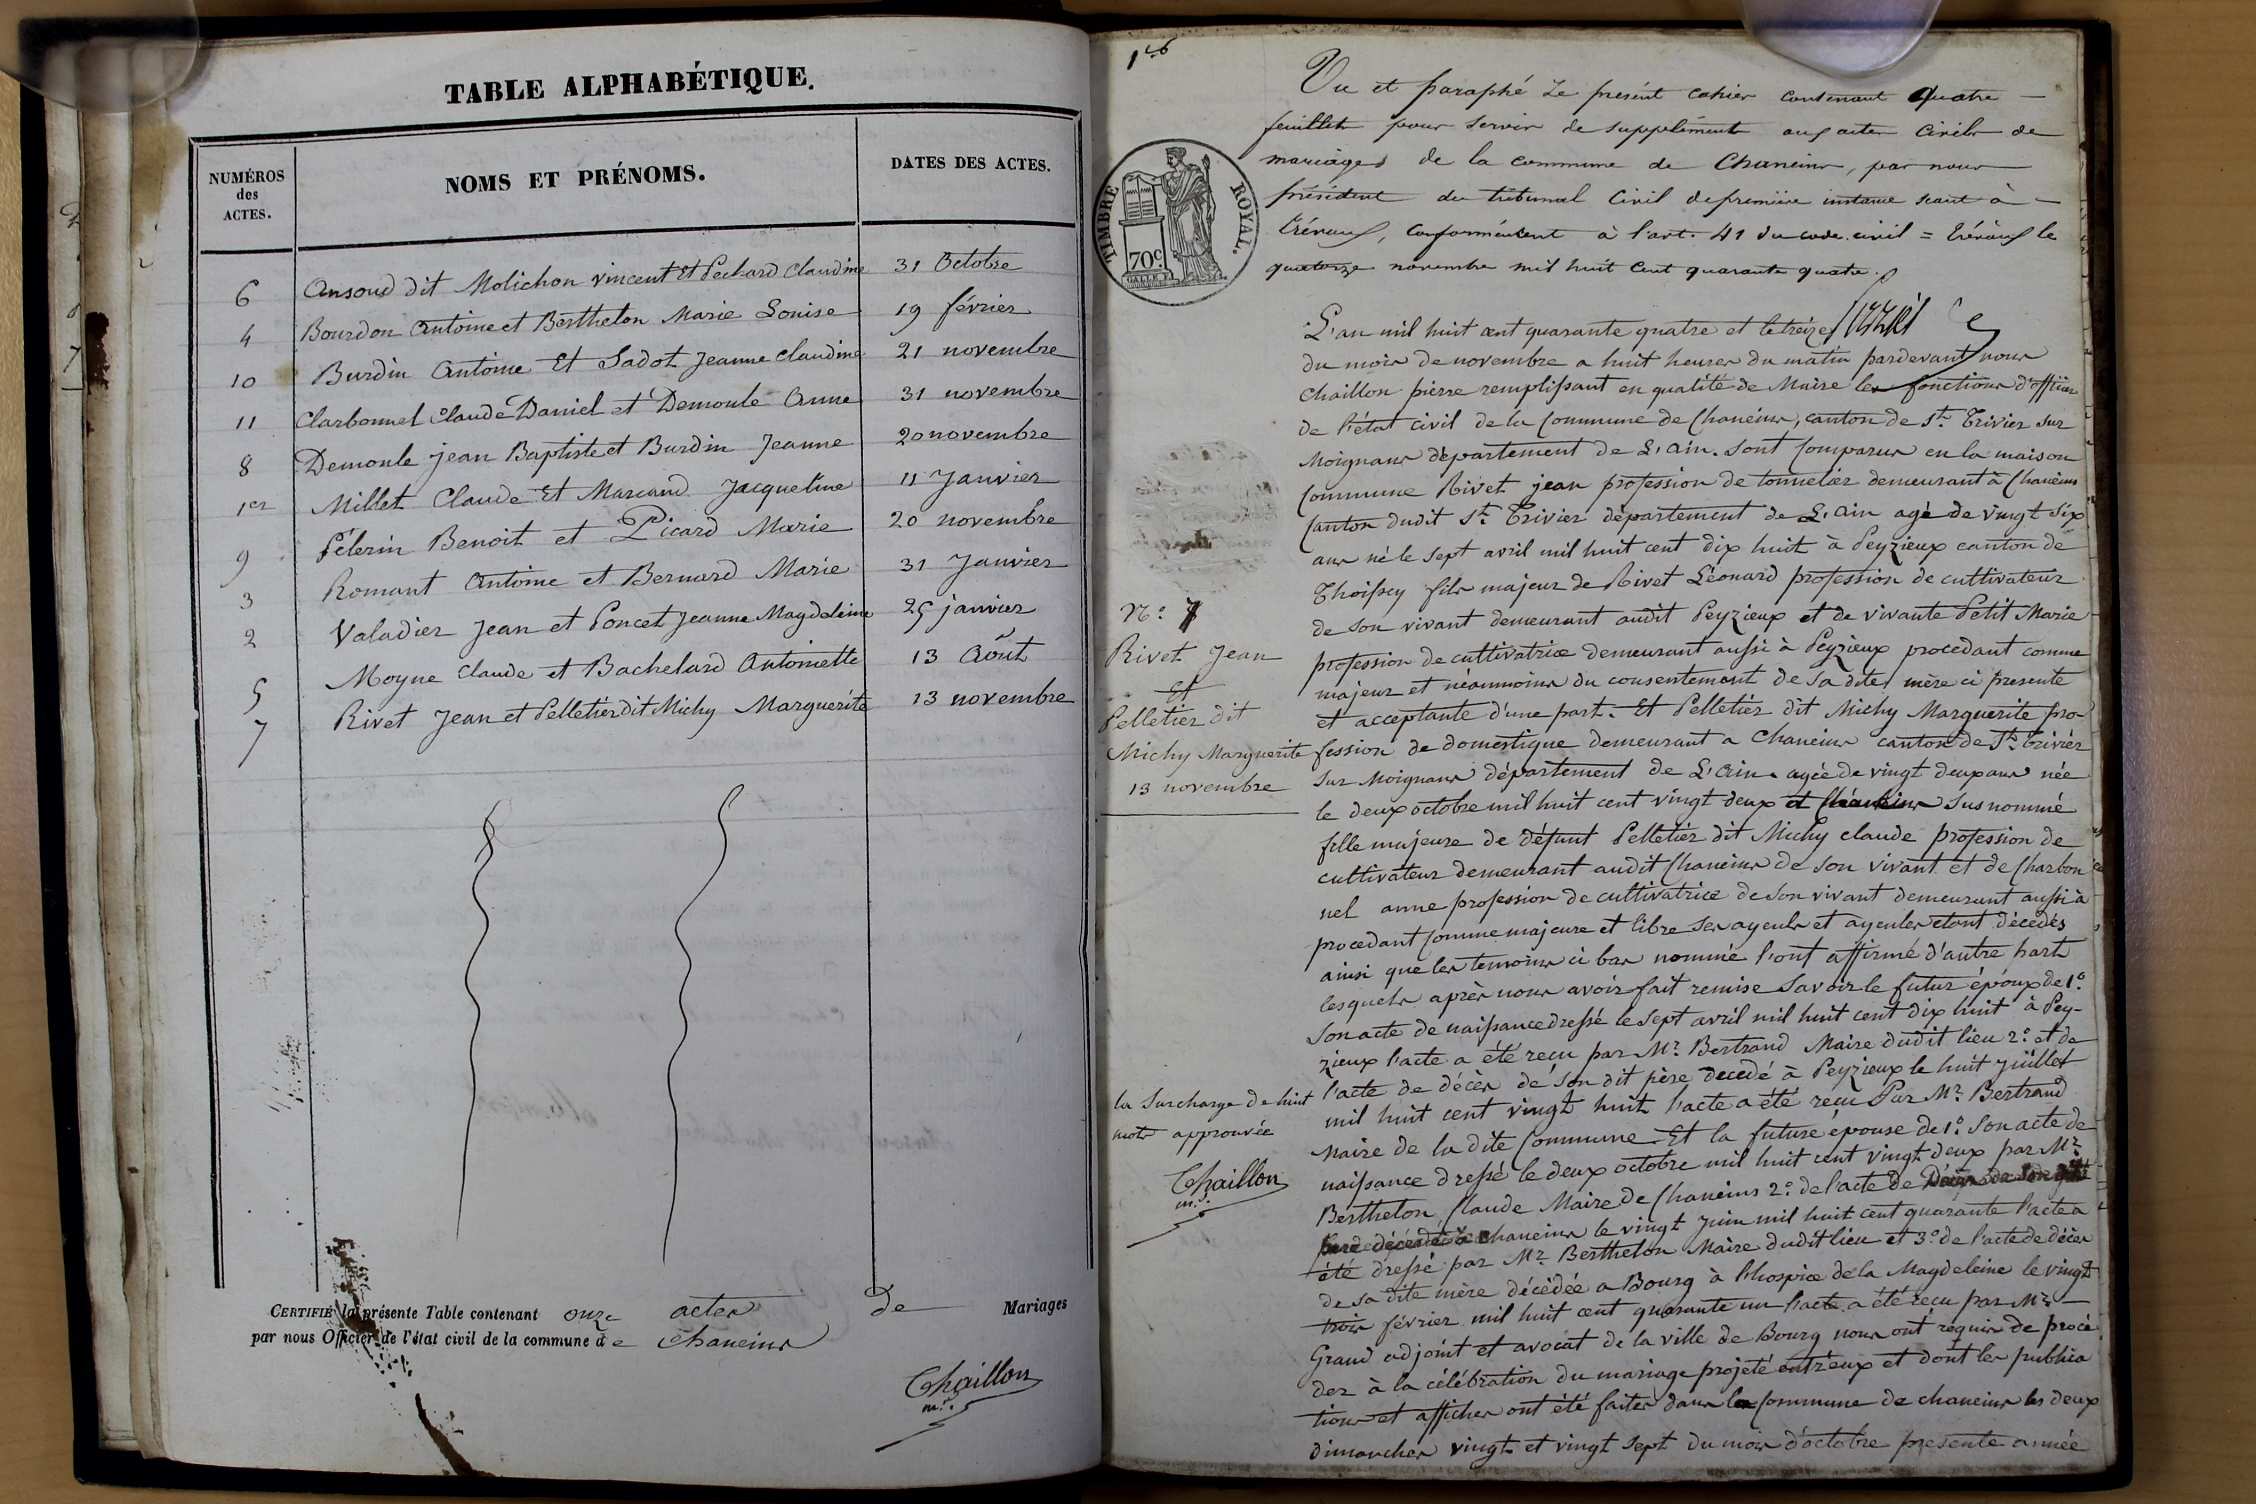 TABLE ALPHABÉTIQUE.
NUMÉROS des ACTES.
NOMS ET PRÉNOMS.
DATES DES ACTES.
6 Ansoud dit Molichon vincent Et Pechard Claudine 31 Octobre
4 Bourdon Antoine et Berthelon Marie Louise 19 février
10 Burdin Antoine Et Sadot Jeanne Claudine 21 novembre
11 Clarbonnel Claude Daniel et Demoule Anne 31 novembre
8 Demoule jean Baptiste et Burdin Jeanne 20 novembre
1er Millet Claude Et Marcand Jacqueline 11 Janvier
9 Pélerin Benoit et Picard Marie 20 novembre
3 Romant Antoine et Bernard Marie 31 Janvier
2 Valadier Jean et Poncet Jeanne Magdeleine 25 janvier
5 Moyne Claude et Bachelard Antoinette 13 Août
7 Rivet Jean et Pelletier dit Michy Marguerite 13 novembre
CERTIFIÉ la présente Table contenant onze actes de Mariages
par nous Officier de l'état civil de la commune de Chaneins
Chaillon
m.re
Vu et paraphé Le présent cahier contenant quatre
feuillets pour servir de supplément aux actes civils de
mariages de la commune de Chaneins, par nous
président du tribunal Civil de première instance séant à
trévoux, conformément à l'art. 41 du code civil = trévoux le
quatorze novembre mil huit cent quarante quatre.
TIMBRE ROYAL.
70c
L'an mil huit cent quarante quatre et le treize
du mois de novembre a huit heures du matin pardevant nous
Chaillon pierre remplissant en qualité de Maire les fonctions d'officier
de l'état civil de la Commune de Chaneins, canton de St. Trivier sur
Moignans département de L'ain. Sont Comparus en la maison
Commune Rivet jean profession de tonnelier demeurant à Chaneins
Canton dudit St. Trivier département de L'ain agé de vingt six
ans né le sept avril mil huit cent dix huit à Peyzieux canton de
Thoissey fils majeur de Rivet Léonard profession de cultivateur
de son vivant demeurant audit Peyzieux et de vivante Petit Marie
profession de cultivatrice demeurant aussi à Peyzieux procédant comme
majeur et néanmoins du consentement de sa dite mère ci presente
et acceptante d'une part. Et Pelletier dit Michy Marguerite pro-
fession de domestique demeurant a Chaneins canton de St. Trivier
sur Moignans département de L'ain agée de vingt deux ans née
le deux octobre mil huit cent vingt deux sus nommé
fille majeure de défunt Pelletier dit Michy claude profession de
cultivateur demeurant audit Chaneins de son vivant et de Charbon
nel anne profession de cultivatrice de son vivant demeurant aussi à
procedant Comme majeure et libre ses ayeuls et ayeules etant décédés
ainsi que les temoins ci bas nommé l'ont affirmé d'autre part
lesquels après nous avoir fait remise Savoir le futur époux de 1.°
Son acte de naissance dressé le sept avril mil huit cent dix huit à Pey-
zieux l'acte a été reçu par Mr. Bertrand Maire dudit lieu 2.° et de
l'acte de décès de son dit père decedé à Peyzieux le huit Juillet
mil huit cent vingt huit l'acte a été reçu Par Mr. Bertrand
Maire de la dite Commune. Et la future épouse de 1.° Son acte de
naissance dressé le deux octobre mil huit cent vingt deux par Mr.
Berthelon Claude Maire de Chaneins 2.° de l'acte de Décès de son dit
père décédé à chaneins le vingt Juin mil huit cent quarante l'acte a
été dressé par Mr. Berthelon Maire dudit lieu et 3.° de l'acte de décès
de sa dite mère décédée a Bourg à l'hospice de la Magdeleine le vingt
trois février mil huit cent quarante un l'acte a été reçu par Mr.
Grand adjoint et avocat de la ville de Bourg nous ont requis de procé
der à la célébration du mariage projeté entr'eux et dont les publica
tions et affiches ont été faites dans la Commune de chaneins les deux
dimanches vingt et vingt sept du mois d'octobre presente année
N.° 7
Rivet Jean
Et
Pelletier dit
Michy Marguerite
13 novembre
la Surcharge de huit
mots approuvée
Chaillon
m.re